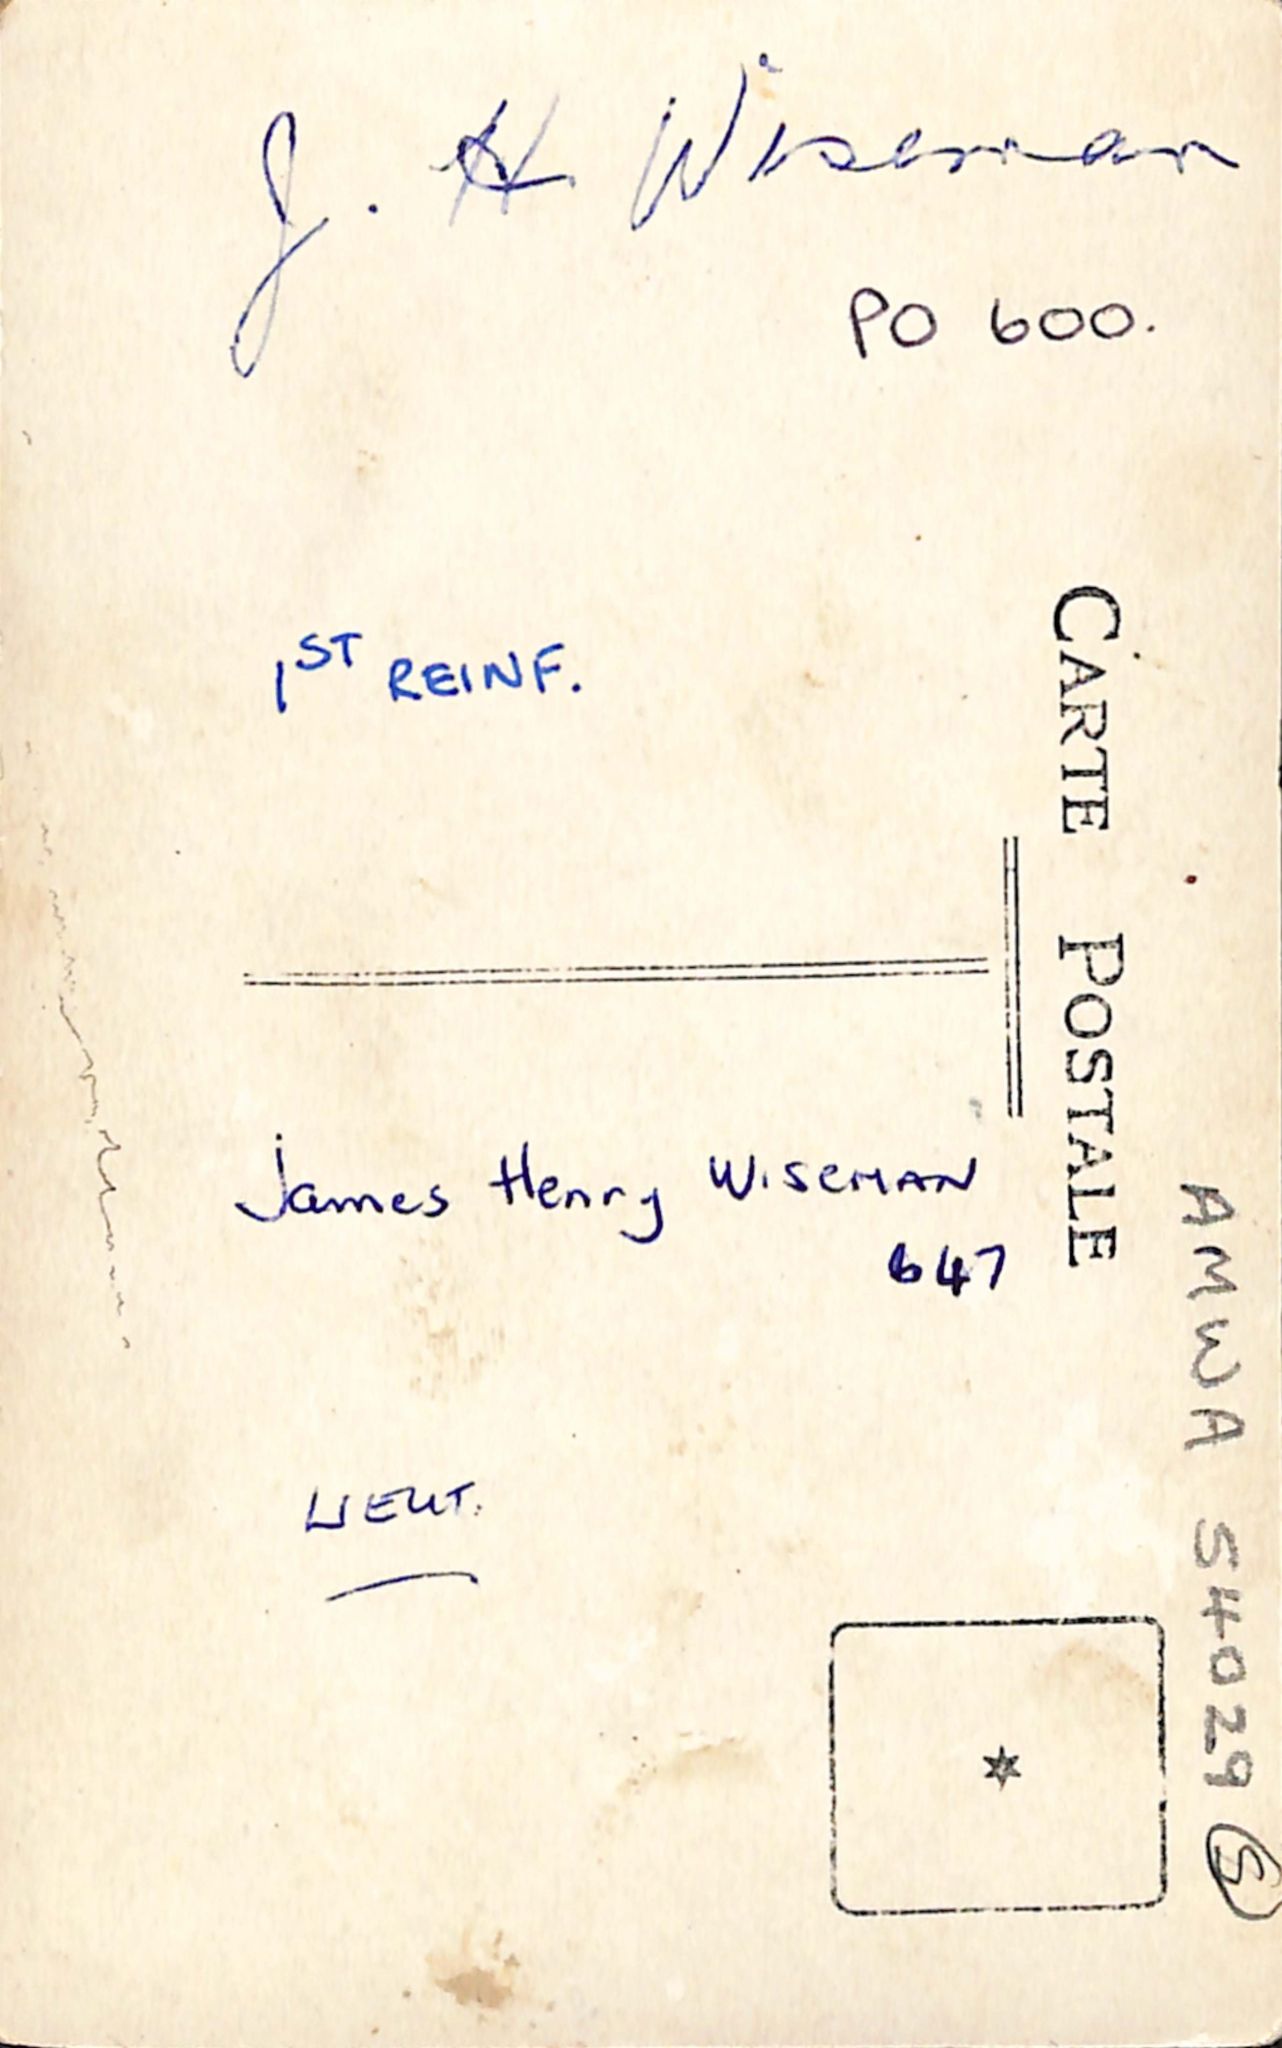 J. H Wiseman
PO 600.
1ST REINF.
CARTE POSTALE
James Henry WISEMAN
647
LIEUT.
AMWA 54029 S